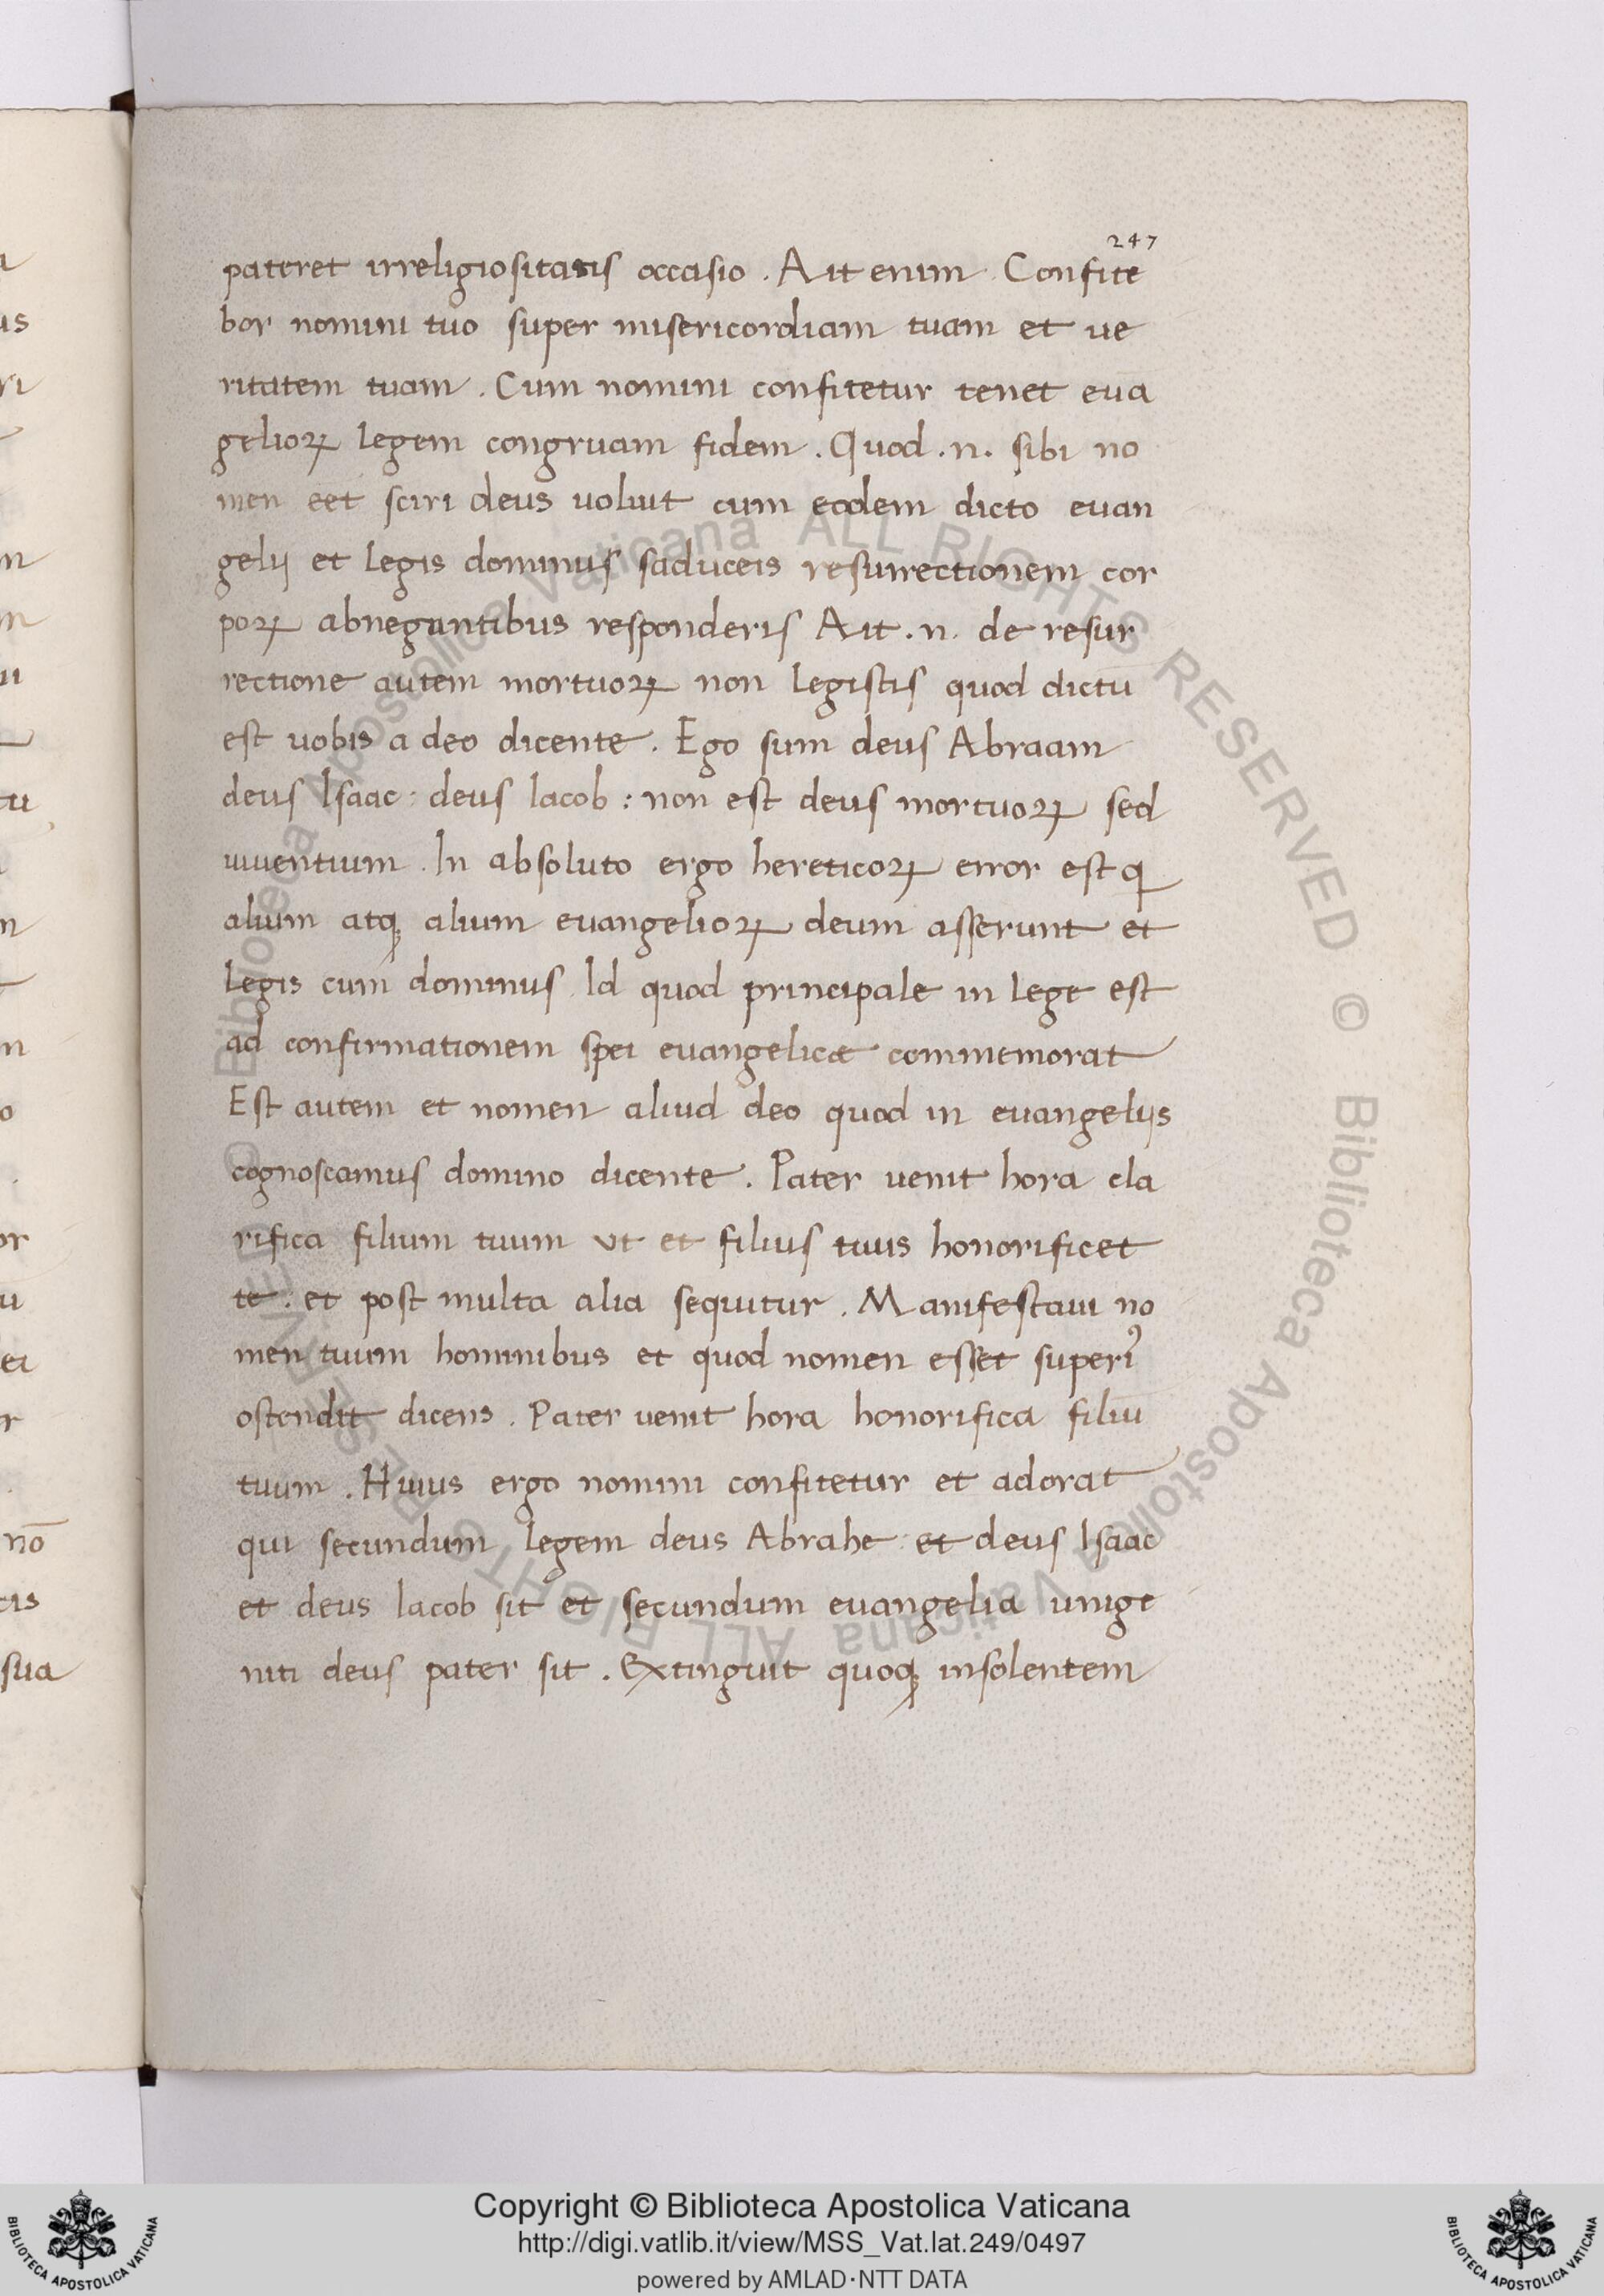 247
pateret irreligiositatis occasio . Ait enim . Confite
bor nomini tuo super misericordiam tuam et ue
ritatem tuam . Cum nomini confitetur tenet eua
gelioꝝ legem congruam fidem . Quod .n. sibi no
men eet sciri deus uoluit cum eodem dicto euan
gelij et legis dominus saduceis resurrectionem cor
poꝝ abnegantibus responderis Ait .n. de resur
rectione autem mortuoꝝ non legistis quod dictū
est uobis a deo dicente . Ego sum deus Abraam
deus Isaac : deus Iacob : non est deus mortuoꝝ sed
uiuentium . In absoluto ergo hereticoꝝ error est qi
alium atqꝫ alium euangelioꝝ deum asserunt et
legis cum dominus Id quod principale in lege est
ad confirmationem spei euangelicæ commemorat
Est autem et nomen aliud deo quod in euangelijs
cognoscamus domino dicente . Pater uenit hora cla
rifica filium tuum vt et filius tuus honorificet
te : et post multa alia sequitur . Manifestaui no
men tuum hominibus et quod nomen esset superiꝰ
ostendit dicens . Pater uenit hora honorifica filiū
tuum . Huius ergo nomini confitetur et adorat
qui secundum legem deus Abrahe et deus Isaac
et deus Iacob sit et secundum euangelia unige
niti deus pater sit . Extinguit quoqꝫ insolentem
Copyright © Biblioteca Apostolica Vaticana
http://digi.vatlib.it/view/MSS_Vat.lat.249/0497
powered by AMLAD·NTT DATA